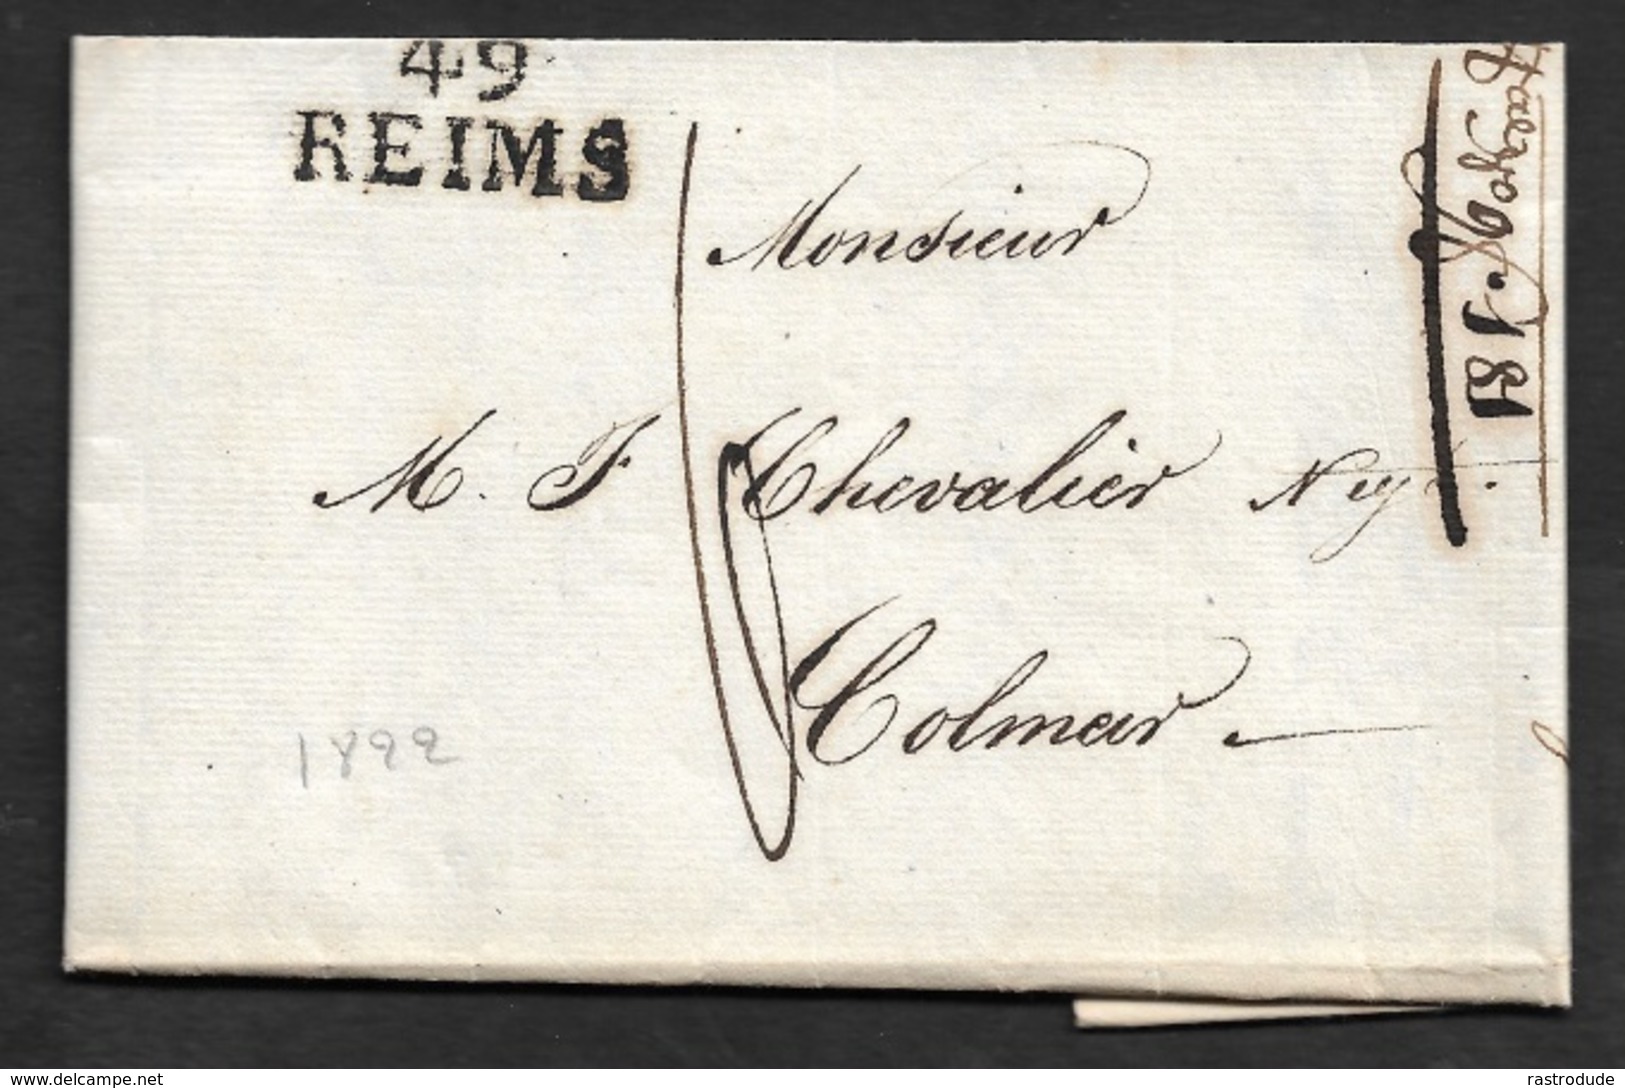 49
REIMS
Monsieur
M. F Chevalier Negt.
Colmar
1822
181
www.delcampe.net
rastrodude